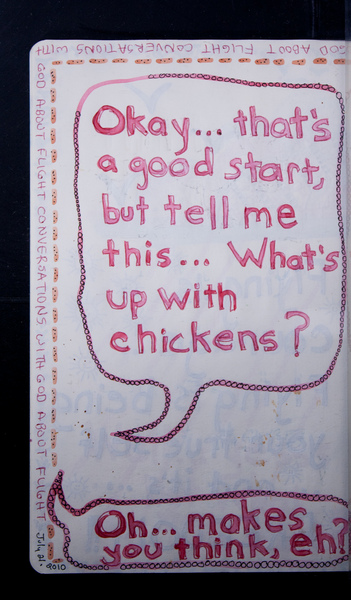 GOD ABOUT FLIGHT CONVERSATIONS WITH
GOD ABOUT FLIGHT CONVERSATIONS WITH GOD ABOUT FLIGHT
July 21. 2010
Okay... that's
a good start,
but tell me
this... What's
up with
chickens?
Oh... makes
you think, eh?